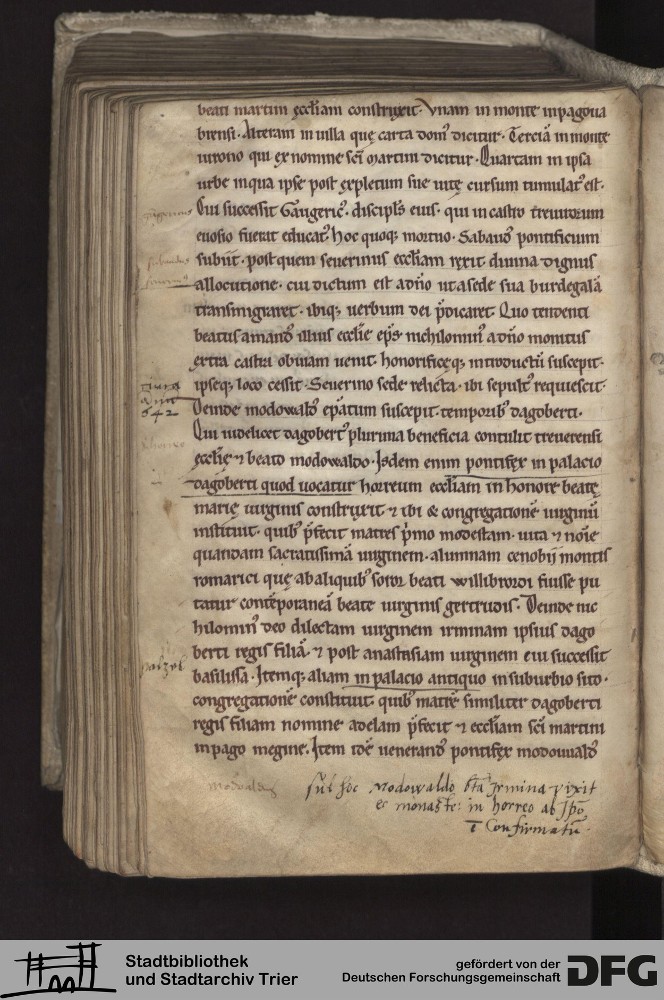 beati martini ęccl̄iam construxit. Vnam in monte inpagoua
biensi. Alteram in uilla quę carta don̄ dicitur. Terciā in monte
iuronio qui ex nomine sc̄i martini dicitur. Quartam in ipsa
urbe inqua ipse post expletum sue uitę cursum tumulatᵒ est.
Cui successit Gaugericᵒ. discipl̄s eius. qui in castro treuirorum
euosio fuerat educatᵒ hoc quoqꝫ mortuo. Sabaudᵒ pontificium
subiit. post quem seuerinus eccl̄iam rexit diuina dignus
allocutione. cui dictum est adn̄o ut a sede sua burdegalā
transmigraret. ibiqꝫ uerbum dei p̄dicaret. Quo tendenti
beatus amandᵒ illius ecclie ep̄s nichilominᵒ a dn̄o monitus
extra castra obuiam uenit. honorificeqꝫ introductū suscepit.
ipseqꝫ loco cessit. Seuerino sede relicta. ibi sepultᵒ requiescit.
Deinde modowaldᵒ ep̄atum suscepit. temporibᵒ dagoberti.
Qui uidelicet dagobertᵒ plurima beneficia contulit treuerensi
ęcclię ⁊ beato modowaldo. Isdem enim pontifex in palacio
dagoberti quod uocatur horreum eccl̄iam in honore beatę
marię uirginis construxit ⁊ ibi & congregationē uirginū
instituit. quibᵒ p̄fecit matres p̄mo modestam. uita ⁊ noīe
quandam sacratissimā uirginem. alumnam cenobij montis
romarici quę ab aliquibᵒ soror beati willibrordi fuisse pu
tatur contēporanea beate uirginis gertrudis. Deinde nic
hilominᵒ deo dilectam uirginem irminam ipsius dago
berti regis filiā. ⁊ post anastasiam uirginem eiu successit
basilissa. Itemqꝫ aliam in palacio antiquo in suburbio sito.
congregationē constituit. quibᵒ matrē similiter dagoberti
regis filiam nomine adelam p̄fecit ⁊ eccl̄iam sc̄i martini
in pago megine. Item idē uenerandᵒ pontifex modowaldᵒ
642
palzel
modoaldᵒ
sub hoc Modowaldo bt̄a Irmina vixit
et monaste: in horreo ab ip̄o
ē Confirmatū.
Stadtbibliothek
und Stadtarchiv Trier
gefördert von der
Deutschen Forschungsgemeinschaft
DFG